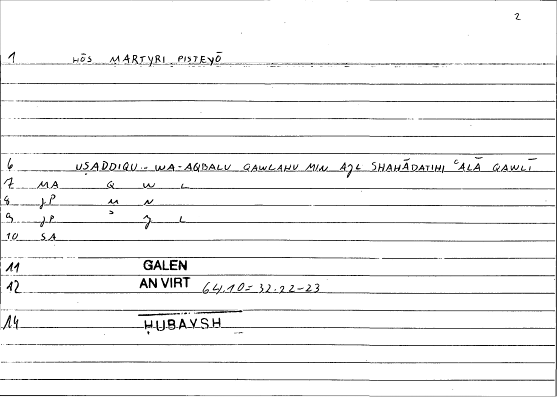 2
1 HŌS MARTYRI PISTEYŌ
6 UṢADDIQU.. WA-AQBALU QAWLAHU MIN AJL SHAHĀDATIHI ʿALĀ QAWLĪ
7 MA Q W L
8 JP M N
9 JP ʾ J L
10 SA
11 GALEN
12 AN VIRT 64.10 = 32.22-23
14 ḤUBAYSH